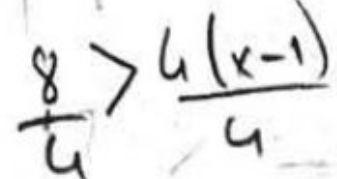 8/4 > 4(x-1)/4